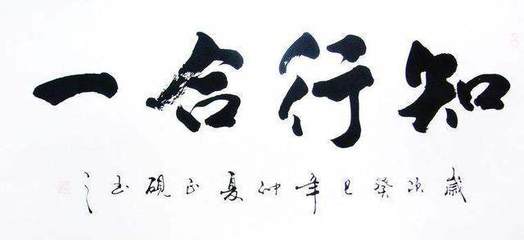 知行合一
歲次癸巳年仲夏正硯書之